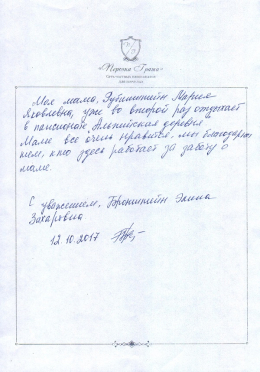 «Перспектива»
Моя мама, Рубинштейн Мария
Яковлевна, уже во второй раз отдыхает
в пансионате „Альпийская деревня“
Маме все очень нравится, мы благодарны
всем, кто здесь работает за заботу о
маме.
С уважением, Бронштейн Элина
Захаровна
12.10.2017